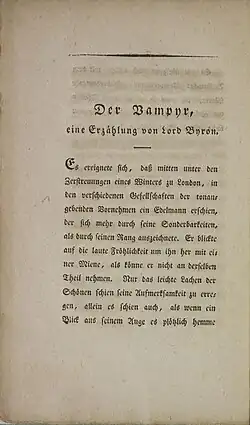 Der Vampyr,
eine Erzählung von Lord Byron.
Es ereignete sich, daß mitten unter den
Zerstreuungen eines Winters zu London, in
den verschiedenen Gesellschaften der tonan-
gebenden Vornehmen ein Edelmann erschien,
der sich mehr durch seine Sonderbarkeiten,
als durch seinen Rang auszeichnete. Er blickte
auf die laute Fröhlichkeit um ihn her mit ei-
ner Miene, als könne er nicht an derselben
Theil nehmen. Nur das leichte Lachen der
Schönen schien seine Aufmerksamkeit zu erre-
gen, allein es schien auch, als wenn ein
Blick aus seinem Auge es plötzlich hemme